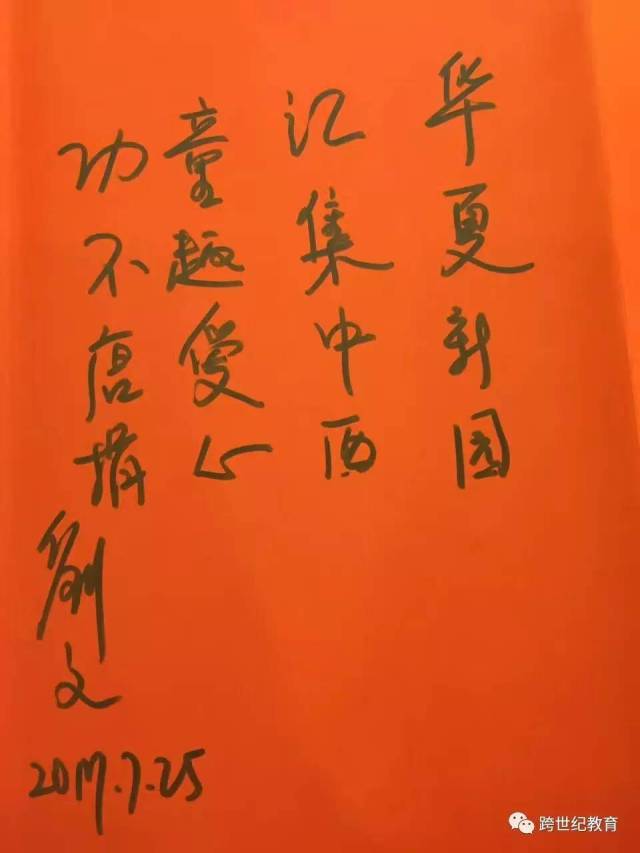 华夏新园
汇集中西
童趣爱心
功不唐捐
刘文
2017.7.25
跨世纪教育